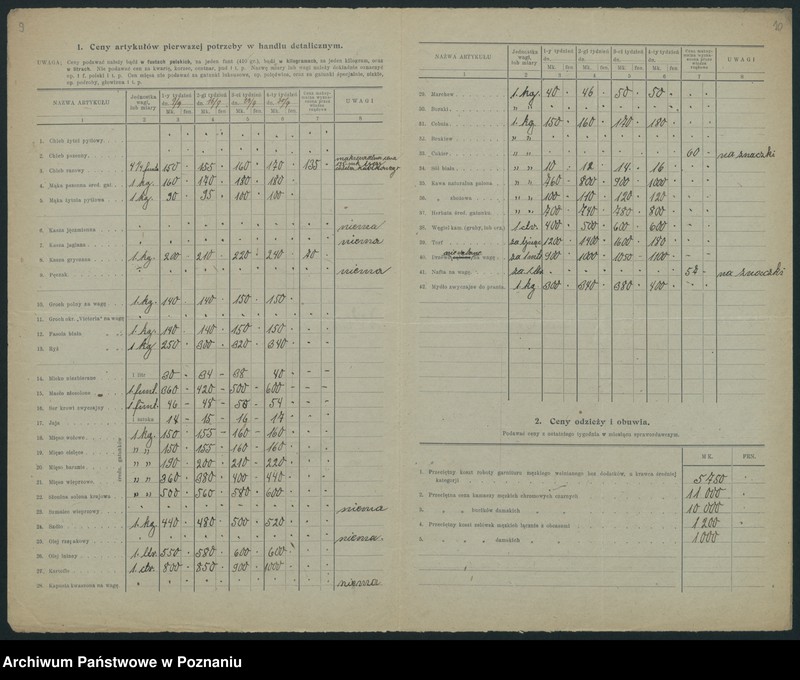 9
1. Ceny artykułów pierwszej potrzeby w handlu detalicznym.
UWAGA: Ceny podawać należy bądź w funtach polskich, za jeden funt (400 gr.), bądź w kilogramach, za jeden kilogram, oraz
w litrach. Nie podawać cen za kwarty, korzec, centnar, pud i t. p. Nazwę miary lub wagi należy dokładnie oznaczyć
np. 1 f. polski i t. p. Cen mięsa nie podawać za gatunki luksusowe, np. polędwice, oraz za gatunki specjalnie, stałe,
NAZWA ARTYKUŁU Jednostka wagi, lub miary 1-y tydzień dn. 2-gi tydzień dn. 3-ci tydzień dn. 4-ty tydzień dn. UWAGI
Mk. fen. Mk. fen. Mk. fen. Mk. fen.
1 2 3 4 5 6 7 8
1. Chleb żytni pytlowy
2. Chleb pszenny
3. Chleb razowy 150 155 160 170 135
4. Mąka pszenna śred. gat. 1 kg. 160 170 180 180
5. Mąka żytnia pytlowa 1 kg. 90 95 100 100
6. Kasza jęczmienna niema
7. Kasza jaglana niema
8. Kasza gryczana 1 kg. 200 210 220 240
9. Pęczak niema
10. Groch polny na wagę 1 kg. 140 140 150 150
11. Groch okr. „Victoria" na wagę
12. Fasola biała 1 kg. 140 140 150 150
13. Ryż 1 kg. 250 300 320 340
14. Mleko niezbierane 1 litr 30 34 38 40
15. Masło śmietanowe 1 funt 360 420 500 600
16. Ser krowi zwyczajny 1 funt 46 48 54
17. Jaja 1 sztuka 14 15 16 17
18. Mięso wołowe 1 kg. 150 155 160 160
19. Mięso cielęce " " 150 155 160 160
20. Mięso baranie " " 190 200 210 220
21. Mięso wieprzowe " " 360 380 400 440
22. Słonina solona krajowa " " 500 560 580 600
23. Szmalec wieprzowy niema
24. Sadło 1 kg. 440 480 500 520
25. Olej rzepakowy niema.
26. Olej lniany 550 580 600 600
27. Kartofle 800 850 900 1000
28. Kapusta kwaszona na wagę niema
średn. gatunków
10
NAZWA ARTYKUŁU Jednostka wagi, lub miary 1-y tydzień dn. 2-gi tydzień dn. 3-ci tydzień dn. 4-ty tydzień dn. UWAGI
Mk. fen. Mk. fen. Mk. fen. Mk. fen.
1 2 3 4 5 6 7 8
29. Marchew 1 kg. 40 46 50 50
30. Buraki " "
31. Cebula 1 kg 150 160 170 180
32. Brukiew " "
33. Cukier " " 60 na znaczki
34. Sól biała " " 10 12 14 16
35. Kawa naturalna palona " " 760 800 900 1000
36. " zbożowa " " 100 110 120 120
37. Herbata śred. gatunku " " 700 740 780 800
38. Węgiel kam. (gruby, lub orz.) 400 500 600 600
39. Torf 1200 1400 1600
40. na wagę 900 1000 1050 1100
41. Nafta na wagę na znaczki
42. Mydło zwyczajne do prania 1 kg. 300 340 380 400
2. Ceny odzieży i obuwia.
Podawać ceny z ostatniego tygodnia w miesiącu sprawozdawczym.
MK. FEN.
1. Przeciętny koszt roboty garnituru męskiego wełnianego bez dodatków, u krawca średniej
kategorji 5750
2. Przeciętna cena kamaszy męskich chromowych czarnych 11 000
3. " " bucików damskich " " 10 000
4. Przeciętny koszt zelówek męskich łącznie z obcasami 1 200
5. " " " damskich " " 1000
Archiwum Państwowe w Poznaniu